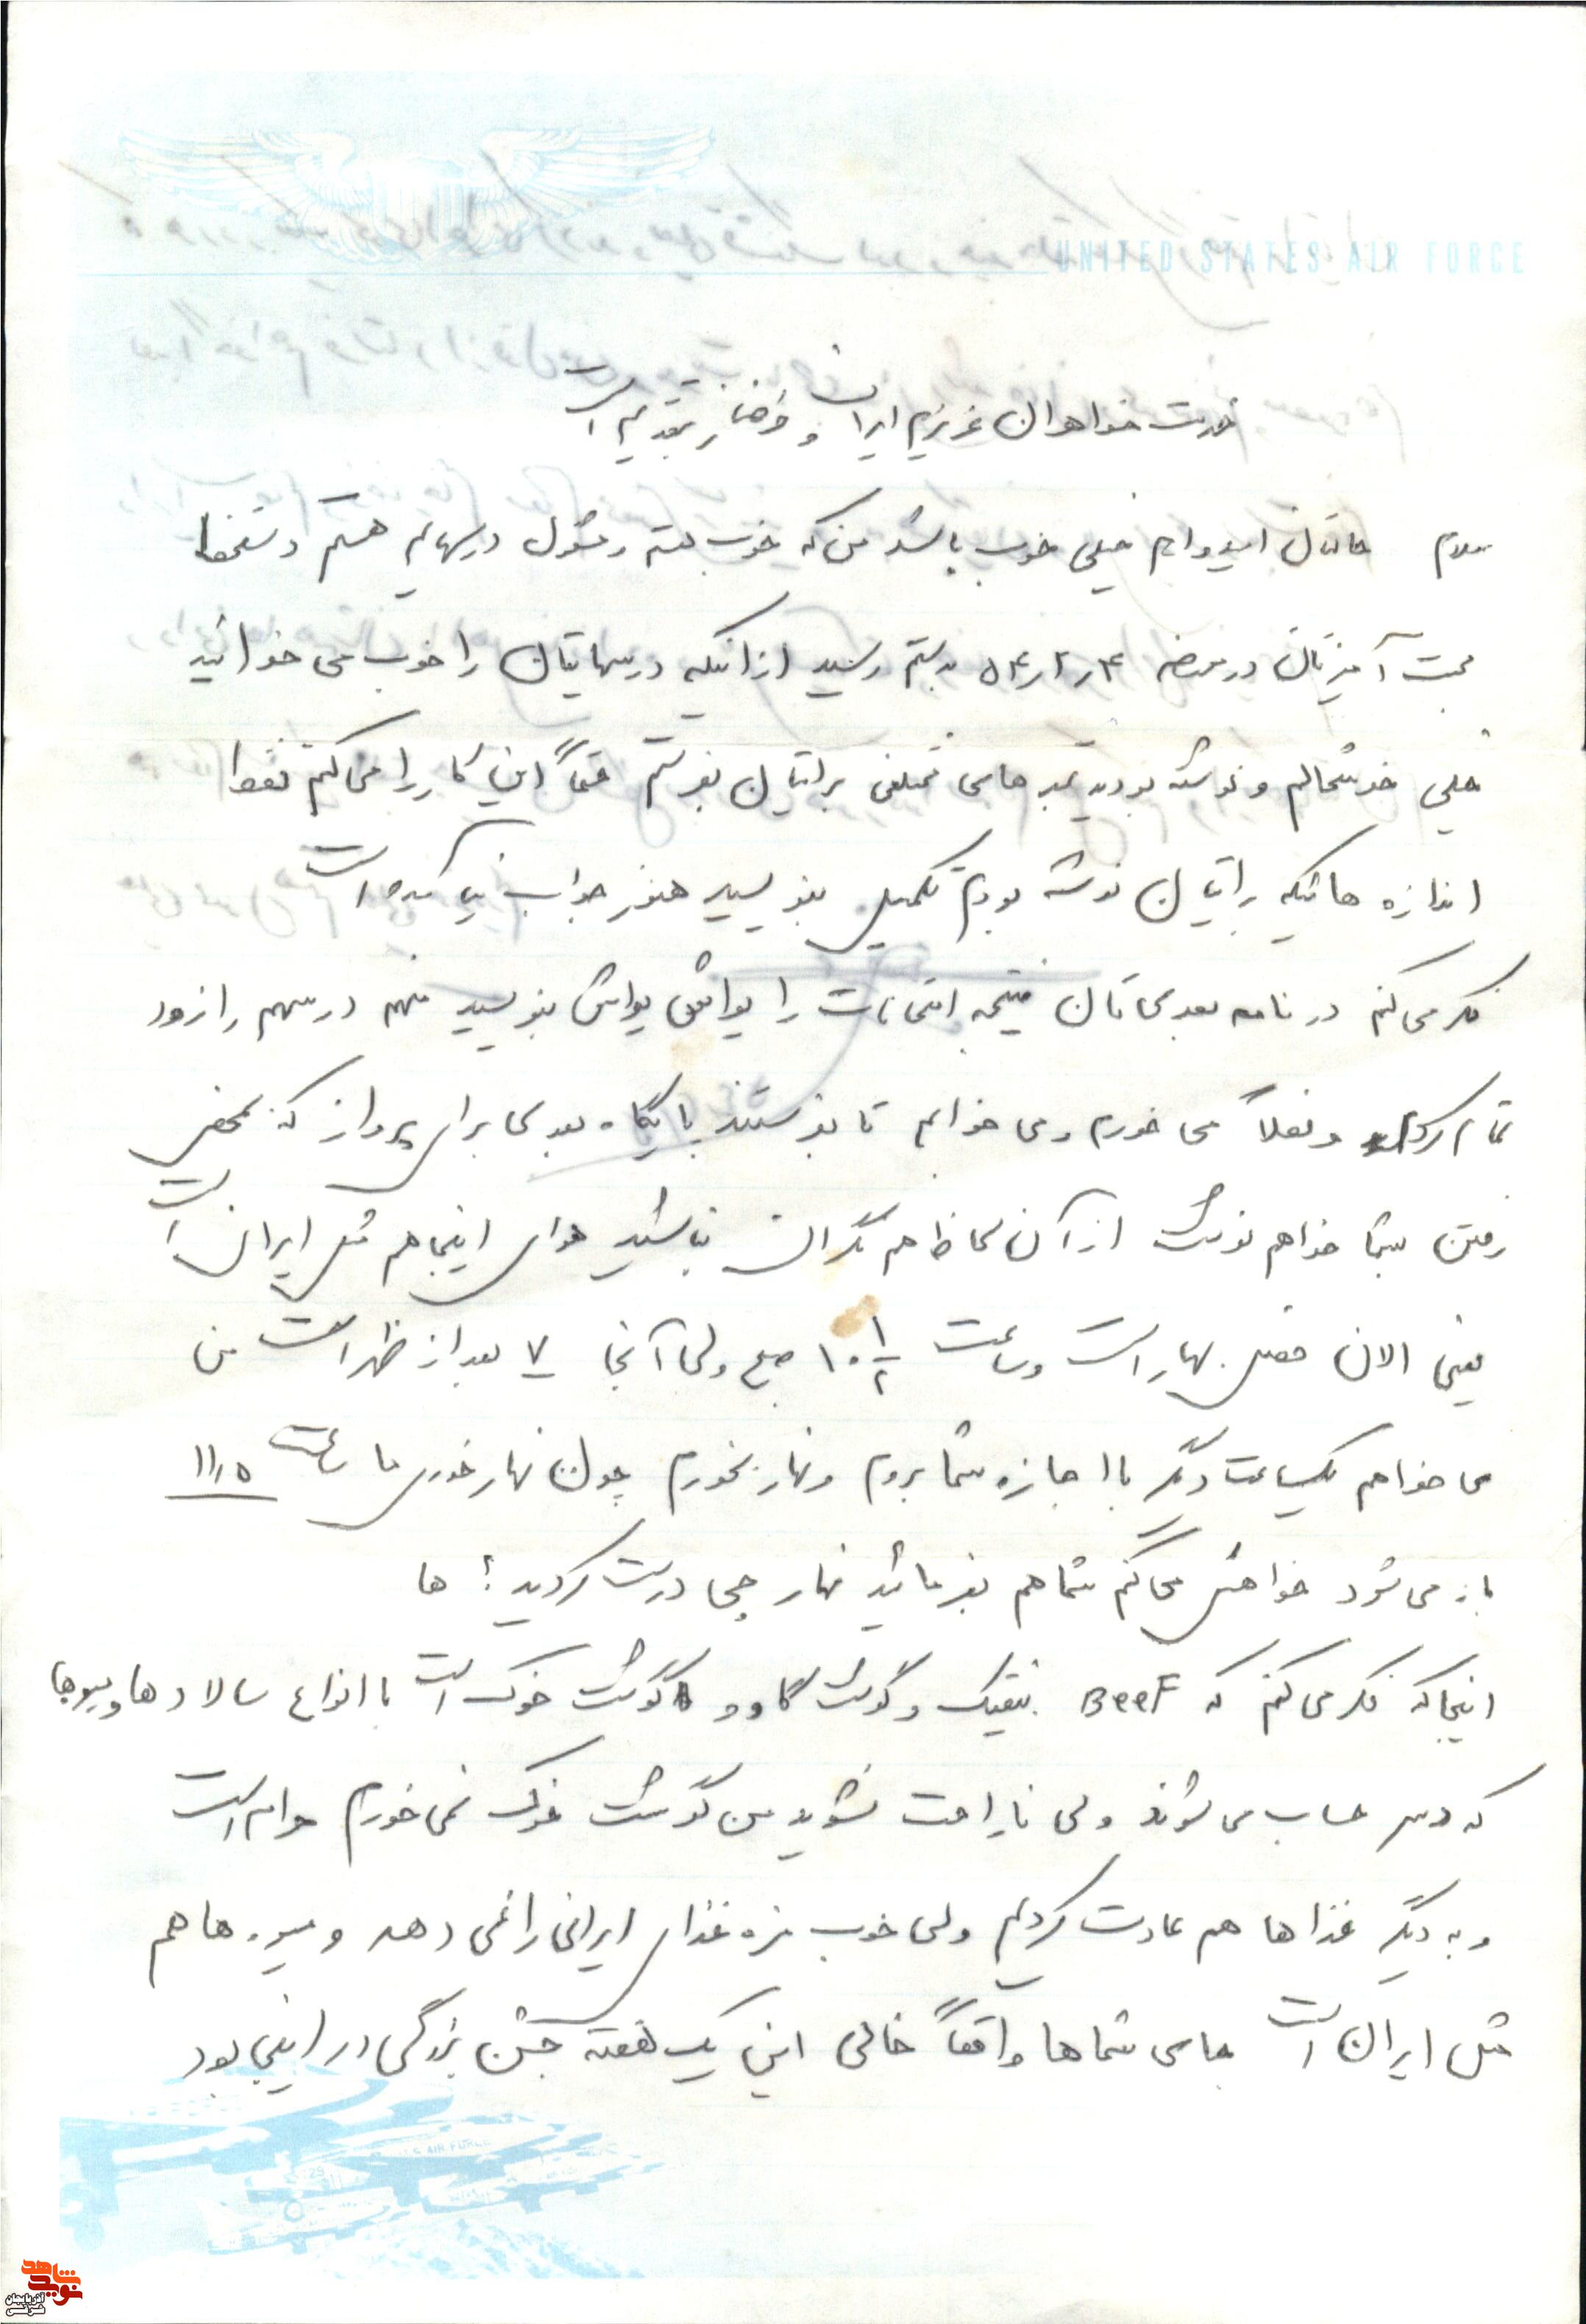 UNITED STATES AIR FORCE
خدمت خواهران عزیزم ایران و فرحناز تقدیم است
سلام حالتان امیدوارم خیلی خوب باشد من که خوب هستم و مشغول درسهایم هستم دستخط
محبت آمیزتان در مورخه ۵۴ر۲ر۴ بدستم رسید از اینکه درسهایتان را خوب می خوانید
خیلی خوشحالم و نوشته بودید تمبر های مختلفی برایتان بفرستم حتماً این کار را می کنم فقط
اندازه هائیکه برایتان نوشته بودم تکمیل بنویسید هنوز جواب نیامده است
فکر می کنم در نامه بعدی تان نتیجه امتحانات را یواش یواش بنویسید منهم درسهم را زود
تمام کردم و فعلاً می خورم و می خوابم تا بفرستند پایگاه بعدی برای پرواز که بمحض
رفتن بشما خواهم نوشت از آن لحاظ هم نگران نباشید هوای اینجا هم مثل ایران است
یعنی الان فصل بهار است و ساعت ۱۰ ۱/۲ صبح ولی آنجا ۷ بعد از ظهر است من
می خواهم یکساعت دیگر با اجازه شما بروم و نهار بخورم چون نهار خوری ما ساعت ۱۱ر۵
باز می شود خواهش می کنم شما هم بفرمائید نهار چی درست کردید؟ ها
اینجا که فکر می کنم که Beef بیفتیک و گوشت گاو و گوشت خوک است با انواع سالادها و میوه‌ها
که دسر حساب می شوند ولی ناراحت نشوید من گوشت خوک نمی خورم حرام است
و به دیگر غذاها هم عادت کردیم ولی خوب مزه غذای ایرانی را نمی دهد و میوه ها هم
مثل ایران است جای شماها واقعاً خالی این یک هفته جشن بزرگی در اینجا بود
U.S. AIR FORCE
نوید شاهد
آذربایجان شرقی